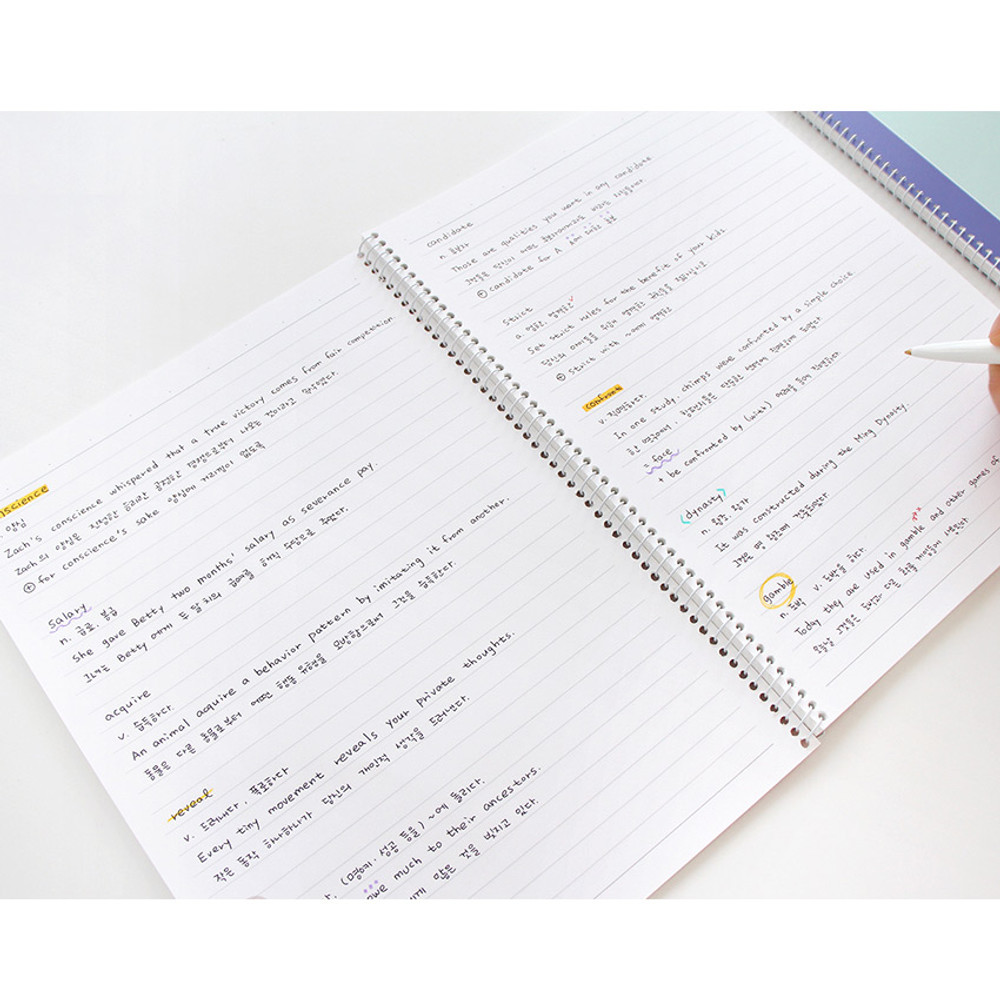 science
양심
Zach's conscience whispered that a true victory comes from fair competition
Zach의 양심은 진정한 승리란 공정한 경쟁으로부터 나오는 것이라고 속삭였다.
+ for conscience's sake 양심에 거리낌이 없도록
Salary
n. 급료, 봉급
She gave Betty two months' salary as severance pay.
그녀는 Betty에게 두 달 치의 급여를 해직 수당으로 주었다.
acquire
v. 습득하다.
An animal acquire a behavior pattern by imitating it from another.
동물은 다른 동물로부터 어떤 행동 유형을 모방함으로써 그것을 습득한다.
reveal
v. 드러내다, 폭로하다
Every tiny movement reveals your private thoughts.
작은 동작 하나하나가 당신의 개인적 생각을 드러낸다.
(명예·성공 등을) ~에 돌리다.
owe much to their ancestors.
많은 것을 빚지고 있다.
candidate
n. 후보자
Those are qualities you want in any candidate
+ candidate for A
Strict
a. 엄한, 엄격한
Set strict rules for the benefit of your kids
당신의 아이들을 위해 엄격한 규칙을 정하십시오
+ strict with ~에게 엄격한
confront
v. 직면하다.
In one study, chimps were confronted by a simple choice
한 연구에서, 침팬지들은 단순한 선택에 직면하게 되었다
= face
+ be confronted by (with)
<dynasty>
n. 왕조, 왕가
It was constructed during the Ming Dynasty.
그것은 명 왕조에 건축되었다.
gamble
n. 도박 v. 도박을 하다.
Today they are used in gamble and other games of
오늘날 그것들은 도박과 다른 확률 게임에 사용된다.